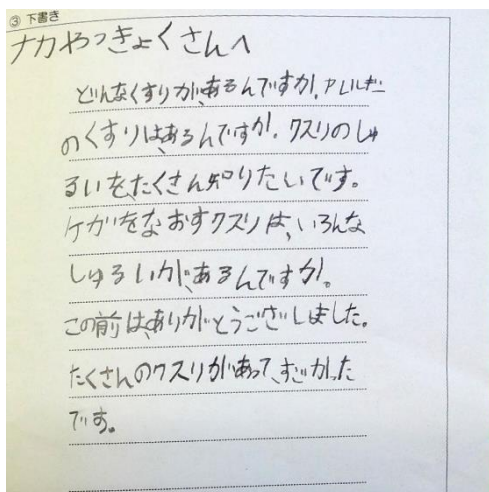 ③ 下書き
ナカやっきょくさんへ
どんなくすりが、あるんですか。アレルギー
のくすりは、あるんですか。クスリのしゅ
るいを、たくさん知りたいです。
ケガをなおすクスリは、いろんな
しゅるいが、あるんですか。
この前は、ありがとうございしました。
たくさんのクスリがあって、すごかった
です。